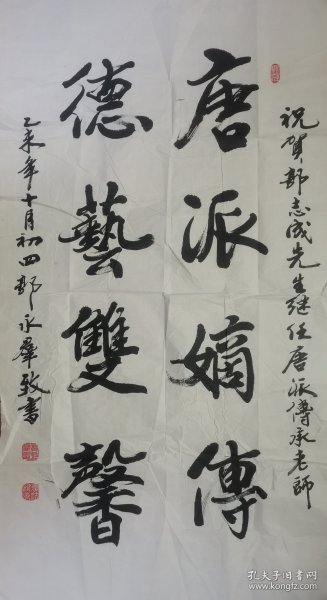 祝贺郭志成先生继任唐派傳承老師
唐派嫡傳
德藝雙馨
乙未年十月初四郭永群敬書
孔夫子旧书网
www.kongfz.com